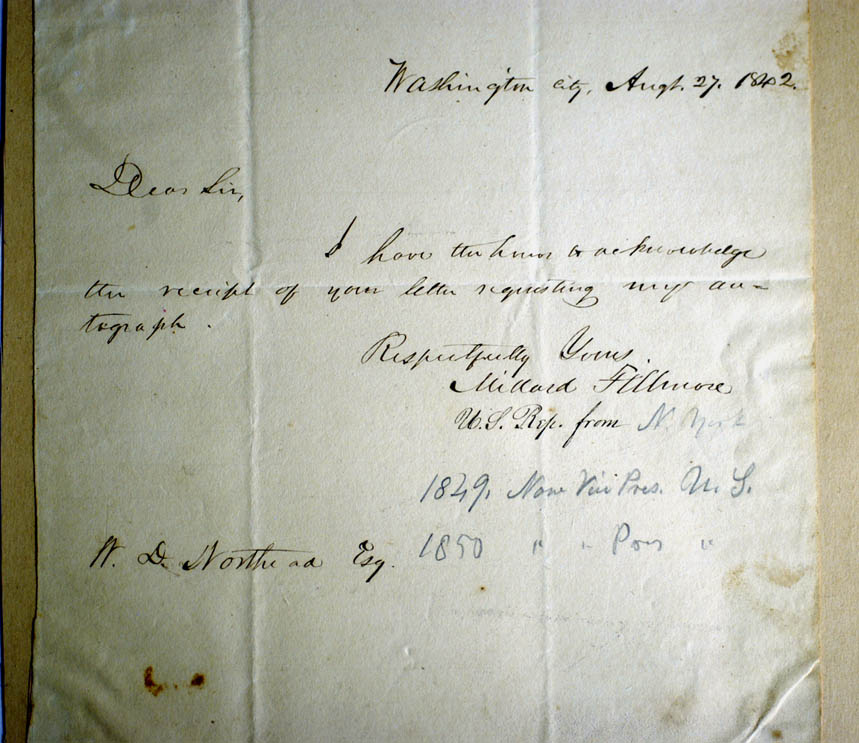 Washington city, Augt. 27. 1842.
Dear Sir,
I have the honor to acknowledge
the receipt of your letter requesting my au-
tograph.
Respectfully Yours.
Millard Fillmore
U.S. Rep. from N. York
1849, Now Vice Pres. U. S.
1850 " " Pres "
W. D. Northend Esq.